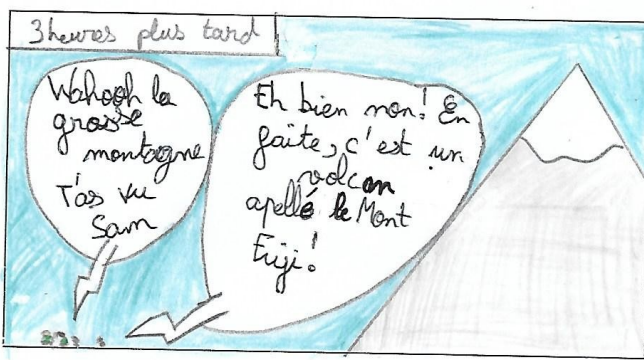 3 heures plus tard
Wahooh la
grosse
montagne
T'as vu
Sam
Eh bien non! En
faite, c'est un
volcan
apellé le Mont
Fuji!